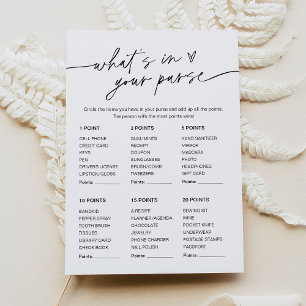 what's in
your purse
Circle the items you have in your purse and add up all the points.
The person with the most points wins!
1 POINT
CELL PHONE
CREDIT CARD
KEYS
PEN
DRIVERS LICENSE
LIPSTICK/GLOSS
Points:
3 POINTS
GUM/MINTS
RECEIPT
COUPON
SUNGLASSES
BRUSH/COMB
TWEEZERS
Points:
5 POINTS
HAND SANITIZER
MIRROR
MASCARA
PHOTO
HEADPHONES
GIFT CARD
Points:
10 POINTS
BANDAID
PEPPER SPRAY
TOOTHBRUSH
TISSUES
LIBRARY CARD
CHECK BOOK
Points:
15 POINTS
A RECIPE
PLANNER/AGENDA
CHOCOLATE
JEWELRY
PHONE CHARGER
NAIL POLISH
Points:
20 POINTS
SEWING KIT
WINE
POCKET KNIFE
UNDERWEAR
POSTAGE STAMPS
PASSPORT
Points: